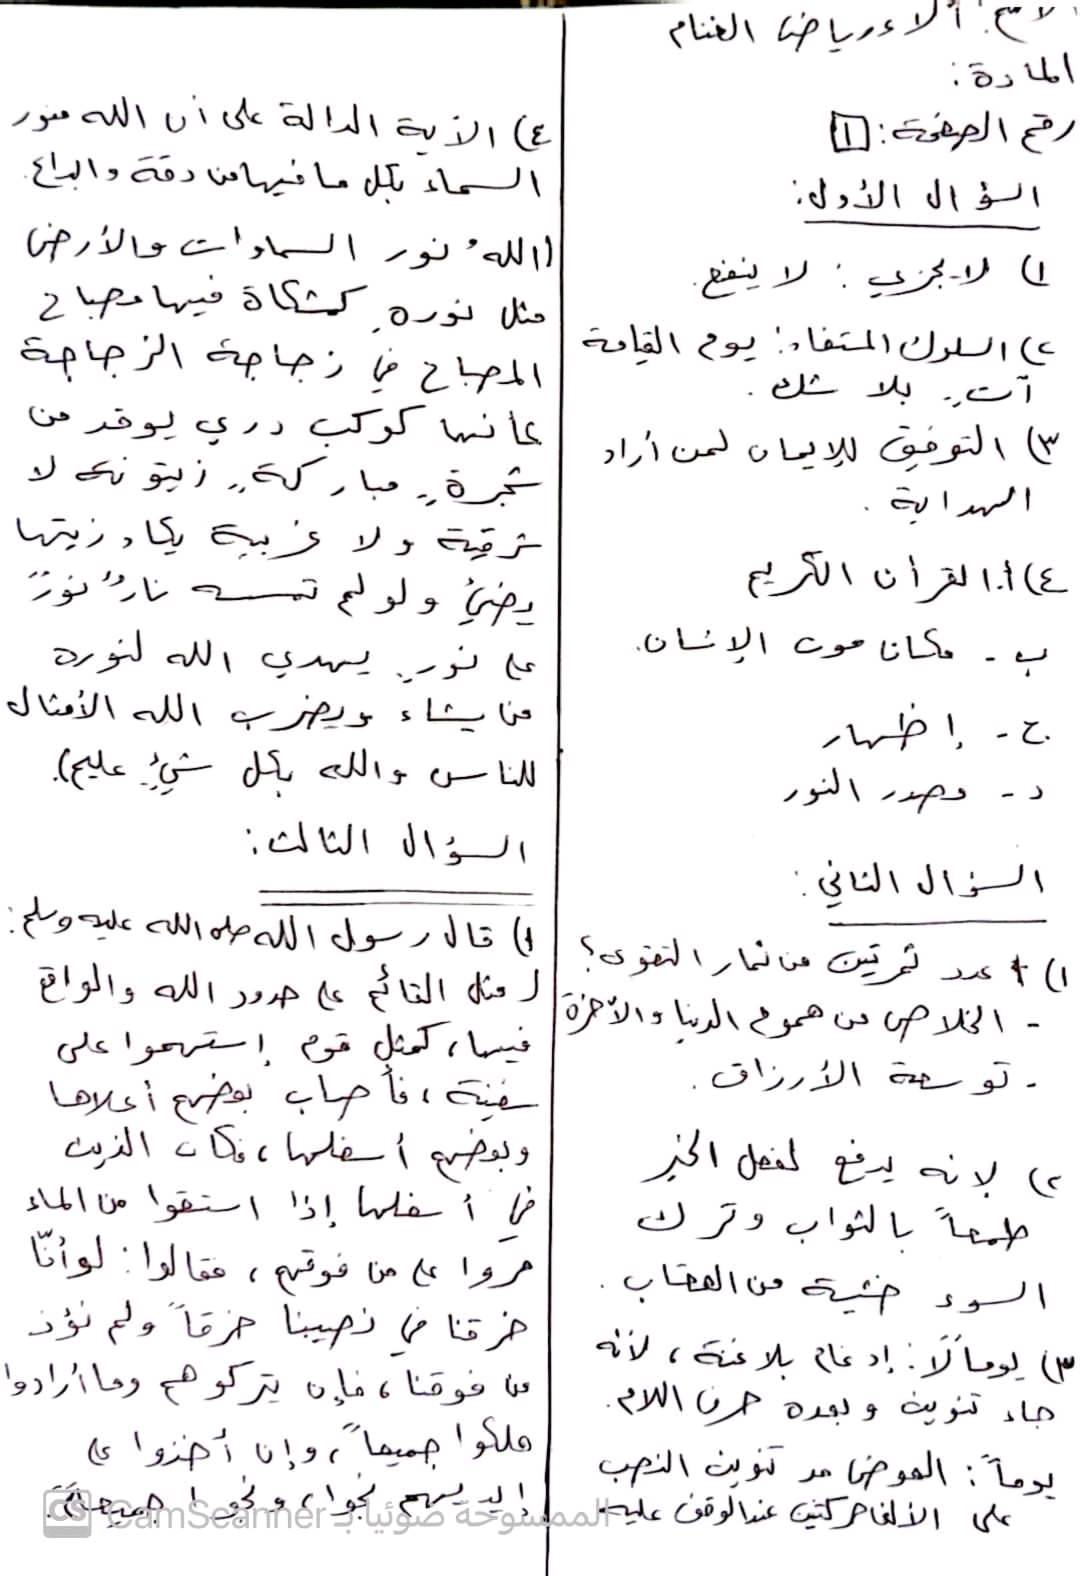 آلاء رياض الغنام
المادة:
رقم الصفحة: 1
السؤال الأول:
١) لا يجزي: لا ينفع.
٢) السلوك المستفاد: يوم القيامة
آتٍ بلا شك.
٣) التوفيق للإيمان لمن أراد
الهداية.
٤) أ. القرآن الكريم
ب - مكان موت الإنسان.
ج - إظهار
د - مصدر النور
السؤال الثاني:
١) عدد ثمرتين من ثمار التقوى؟
- الخلاص من هموم الدنيا والآخرة
- توسعة الأرزاق.
٢) لانه يدفع لفعل الخير
طمعاً بالثواب وترك
السوء خشية من العقاب.
٣) يوماً لّا: إدغام بلا غنة، لأنه
جاء تنوين وبعده حرف اللام.
يوماً: العوض مد تنوين النصب
على الألف حركتين عند الوقف عليه
٤) الآية الدالة على أن الله منور
السماء بكل ما فيها من دقة وابداع.
(اللهُ نور السماوات والأرض
مثل نوره كمشكاة فيها مصباح
المصباح في زجاجة الزجاجة
كأنها كوكب دري يوقد من
شجرةٍ مباركةٍ زيتونة لا
شرقية ولا غربية يكاد زيتها
يضيُ ولو لم تمسسه نارٌ نورٌ
على نورٍ يهدي الله لنوره
من يشاء ويضرب الله الأمثال
للناس والله بكل شيءٍ عليم).
السؤال الثالث:
١) قال رسول الله صلى الله عليه وسلم:
(مثل القائم على حدود الله والواقع
فيها، كمثل قوم إستهموا على
سفينة، فأصاب بعضهم أعلاها
وبعضهم أسفلها، فكان الذين
في أسفلها إذا استقوا من الماء
مروا على من فوقهم، فقالوا: لو أنّا
خرقنا في نصيبنا خرقاً ولم نؤذ
من فوقنا، فإن يتركوهم وما أرادوا
هلكوا جميعاً، وإن أخذوا على
إيديهم نجوا، ونجوا جميعاً
الممسوحة ضوئيا بـ CamScanner
CS